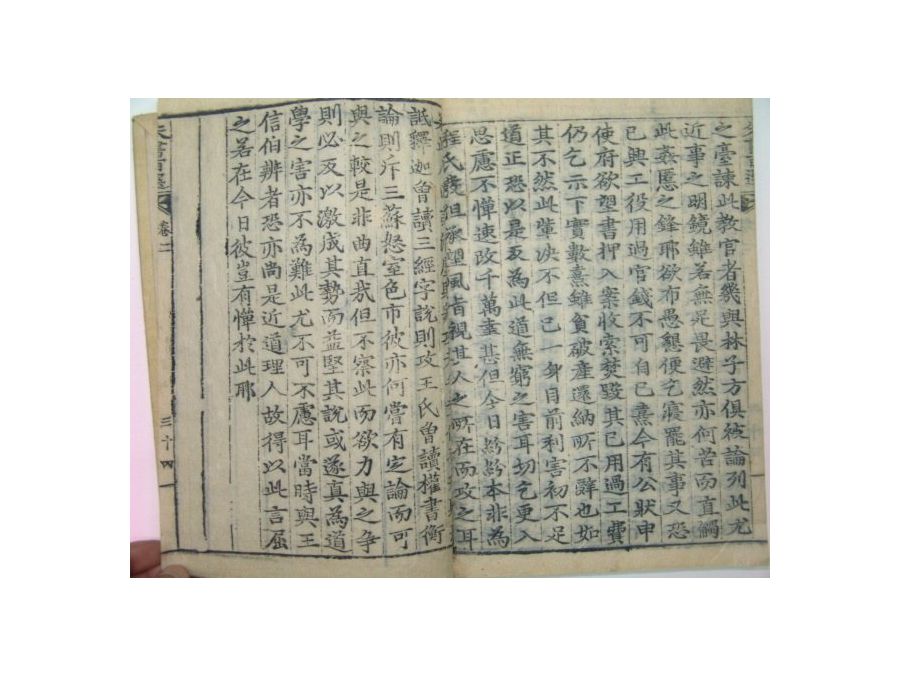 之臺諫此教官者幾與林子方俱被論列此尤
近事之明鏡雖若無足畏避然亦何苦而直觸
此姦慝之鋒耶欲布愚懇便乞寢罷其事又恐
已興工役用過官錢不可自已熹今有公狀申
使府欲望書押入案收索焚毀其已用過工費
仍乞示下實數熹雖貧破產還納所不辭也如
其不然此輩決不但已一身目前利害初不足
道正恐以是反為此道無窮之害耳切乞更入
思慮不憚速改千萬幸甚但今日紛紛本非為
程氏發但承望風旨視其人之所在而攻之耳
詆釋迦曾讀三經字說則攻王氏曾讀權書衡
論則斥三蘇怒室色市彼亦何嘗有定論而可
與之較是非曲直哉但不察此而欲力與之爭
則必反以激成其勢而益堅其說或遂真為道
學之害亦不為難此尤不可不慮耳當時與王
信伯辨者恐亦尚是近道理人故得以此言屈
之若在今日彼豈有憚於此耶
卷二
三十四